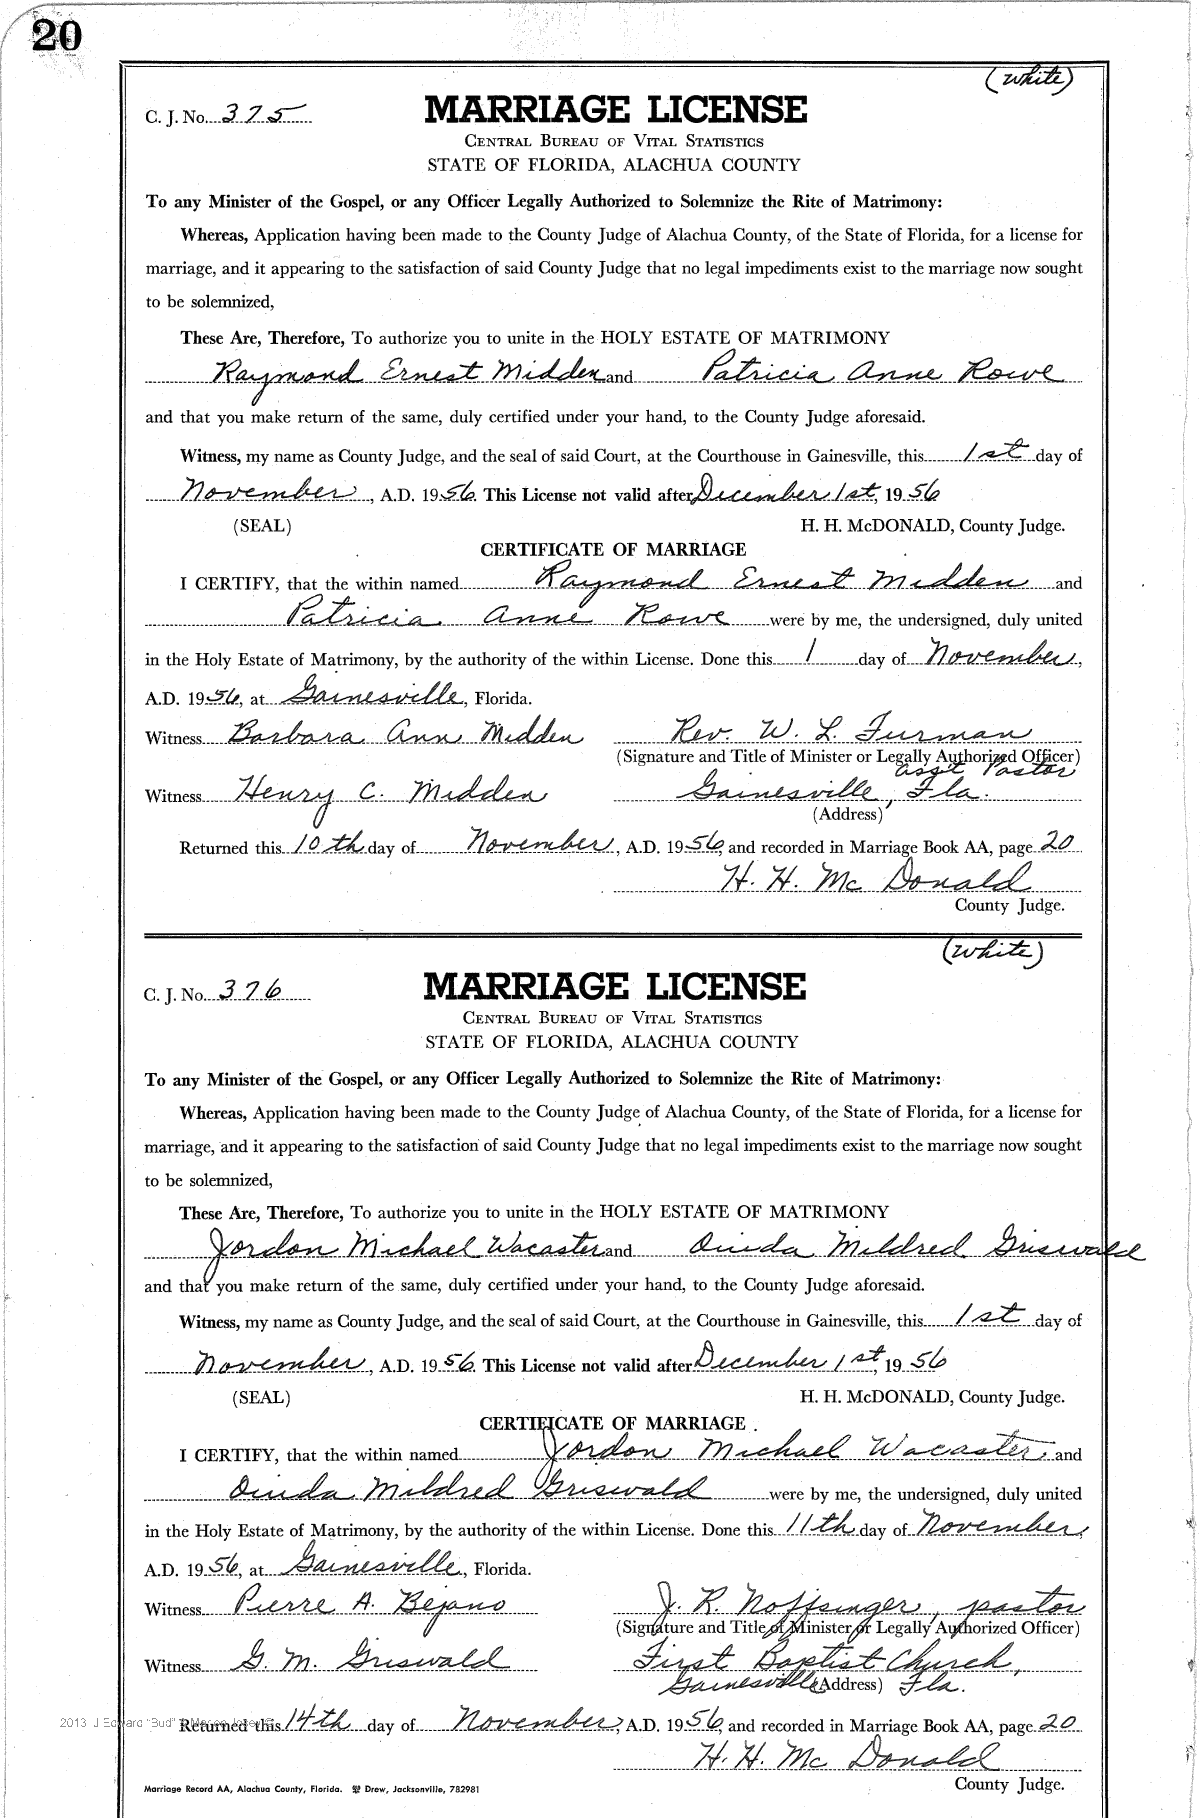 20
(White)
C. J. No. 375
MARRIAGE LICENSE
CENTRAL BUREAU OF VITAL STATISTICS
STATE OF FLORIDA, ALACHUA COUNTY
To any Minister of the Gospel, or any Officer Legally Authorized to Solemnize the Rite of Matrimony:
Whereas, Application having been made to the County Judge of Alachua County, of the State of Florida, for a license for
marriage, and it appearing to the satisfaction of said County Judge that no legal impediments exist to the marriage now sought
to be solemnized,
These Are, Therefore, To authorize you to unite in the HOLY ESTATE OF MATRIMONY
Raymond Ernest Midden and Patricia Anne Rowe
and that you make return of the same, duly certified under your hand, to the County Judge aforesaid.
Witness, my name as County Judge, and the seal of said Court, at the Courthouse in Gainesville, this 1st day of
November, A.D. 1956. This License not valid after December 1st, 1956
(SEAL) H. H. McDONALD, County Judge.
CERTIFICATE OF MARRIAGE
I CERTIFY, that the within named Raymond Ernest Midden and
Patricia Anne Rowe were by me, the undersigned, duly united
in the Holy Estate of Matrimony, by the authority of the within License. Done this 1 day of November,
A.D. 1956, at Gainesville, Florida.
Witness Barbara Ann Midden Rev. W. L. Furman
(Signature and Title of Minister or Legally Authorized Officer)
asst Pastor
Witness Henry C. Midden Gainesville, Fla.
(Address)
Returned this 10th day of November, A.D. 1956, and recorded in Marriage Book AA, page 20
H. H. McDonald
County Judge.
(White)
C. J. No. 376
MARRIAGE LICENSE
CENTRAL BUREAU OF VITAL STATISTICS
STATE OF FLORIDA, ALACHUA COUNTY
To any Minister of the Gospel, or any Officer Legally Authorized to Solemnize the Rite of Matrimony:
Whereas, Application having been made to the County Judge of Alachua County, of the State of Florida, for a license for
marriage, and it appearing to the satisfaction of said County Judge that no legal impediments exist to the marriage now sought
to be solemnized,
These Are, Therefore, To authorize you to unite in the HOLY ESTATE OF MATRIMONY
Jordon Michael Wacaster and Ouida Mildred Griswald
and that you make return of the same, duly certified under your hand, to the County Judge aforesaid.
Witness, my name as County Judge, and the seal of said Court, at the Courthouse in Gainesville, this 1st day of
November, A.D. 1956. This License not valid after December 1st, 1956
(SEAL) H. H. McDONALD, County Judge.
CERTIFICATE OF MARRIAGE
I CERTIFY, that the within named Jordon Michael Wacaster, and
Ouida Mildred Griswald were by me, the undersigned, duly united
in the Holy Estate of Matrimony, by the authority of the within License. Done this 11th day of November,
A.D. 1956, at Gainesville, Florida.
Witness Pierre A. Bejano J. R. Noffsinger, pastor
(Signature and Title of Minister or Legally Authorized Officer)
Witness G. M. Griswald First Baptist Church,
Gainesville, Fla.
(Address)
2013 J Edward "Bud"
Returned this 14th day of November, A.D. 1956, and recorded in Marriage Book AA, page 20
H. H. McDonald
County Judge.
Marriage Record AA, Alachua County, Florida. Drew, Jacksonville, 782981